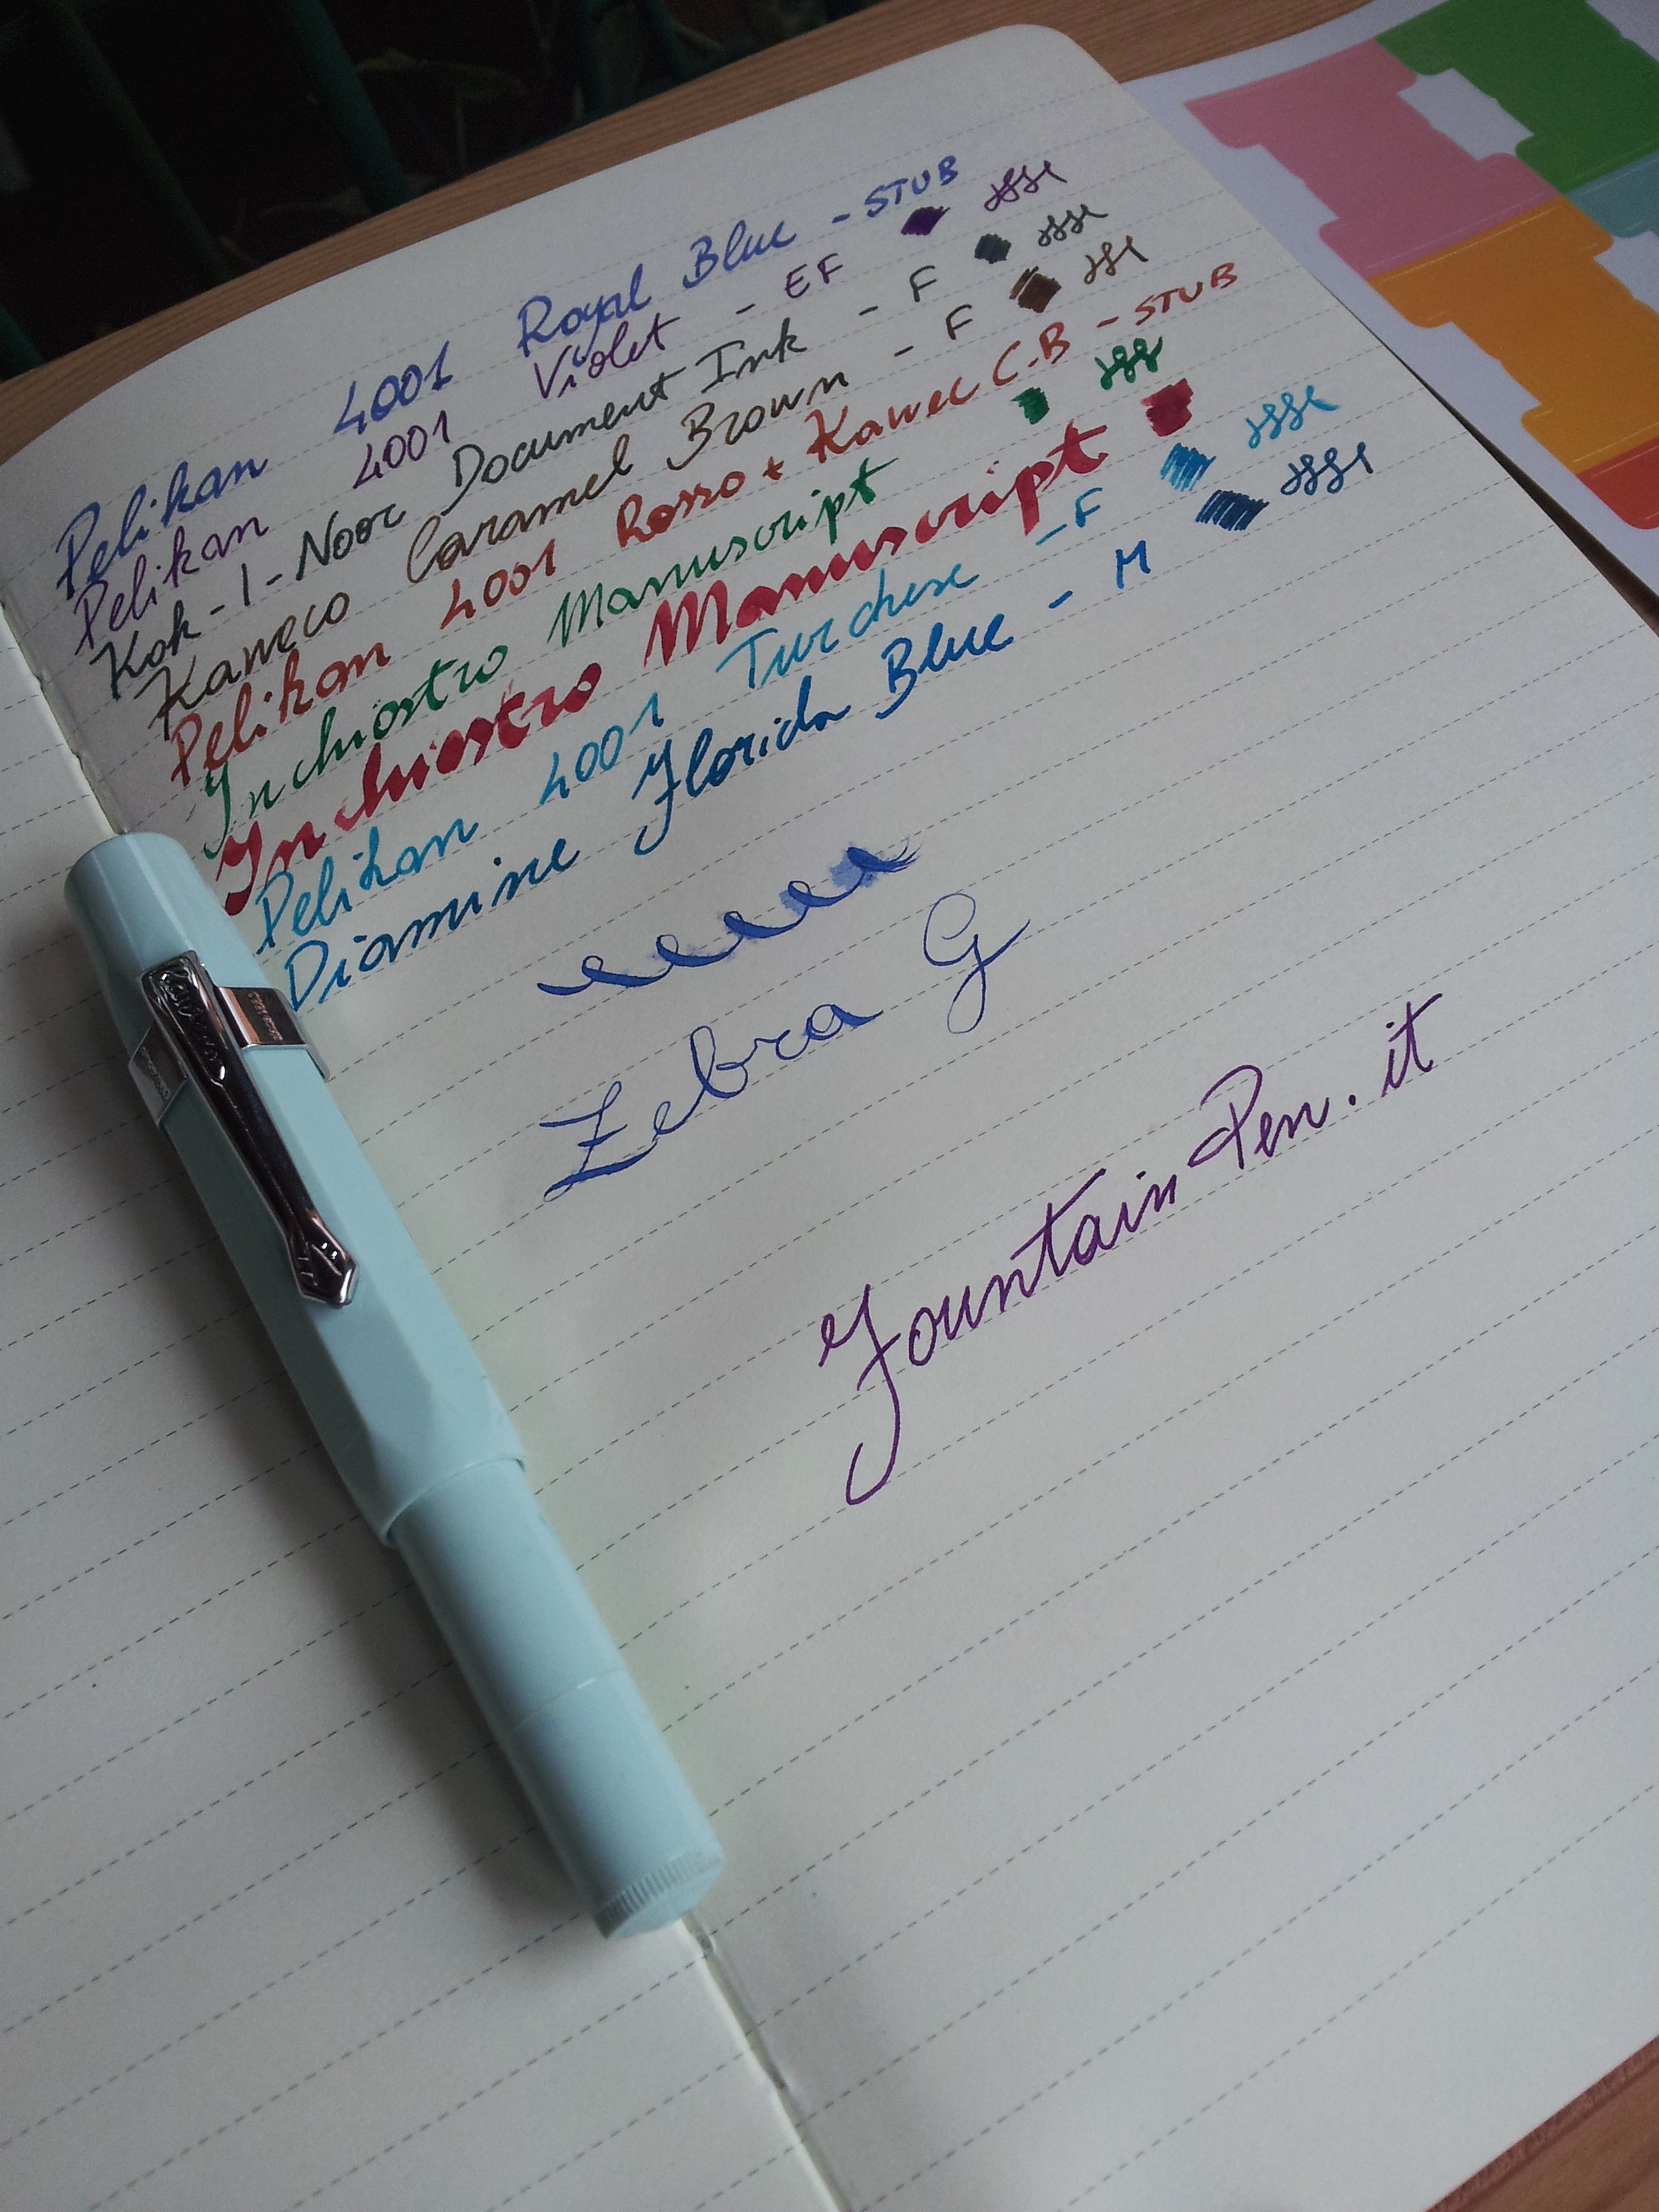 Pelikan 4001 Royal Blue - STUB
Pelikan 4001 Violet - EF
Koh-I-Noor Document Ink - F
Kaweco Caramel Brown - F
Pelikan 4001 Rosso + Kawec C.B - STUB
Inchiostro Manuscript
Inchiostro Manuscript
Pelikan 4001 Turchese - F
Diamine Florida Blue - M
Zebra G
FountainPen.it